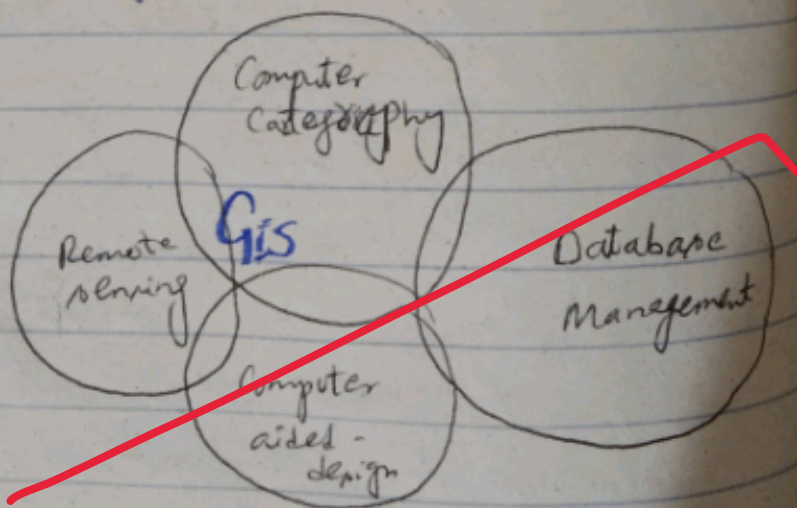 Computer
Cartegraphy
Gis
Remote
sensing
Database
Management
Computer
aided-
design